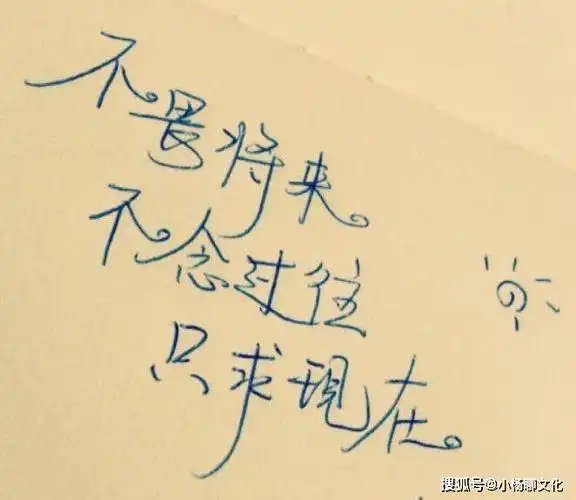 不畏将来
不念过往
只求现在
搜狐号@小杨聊文化